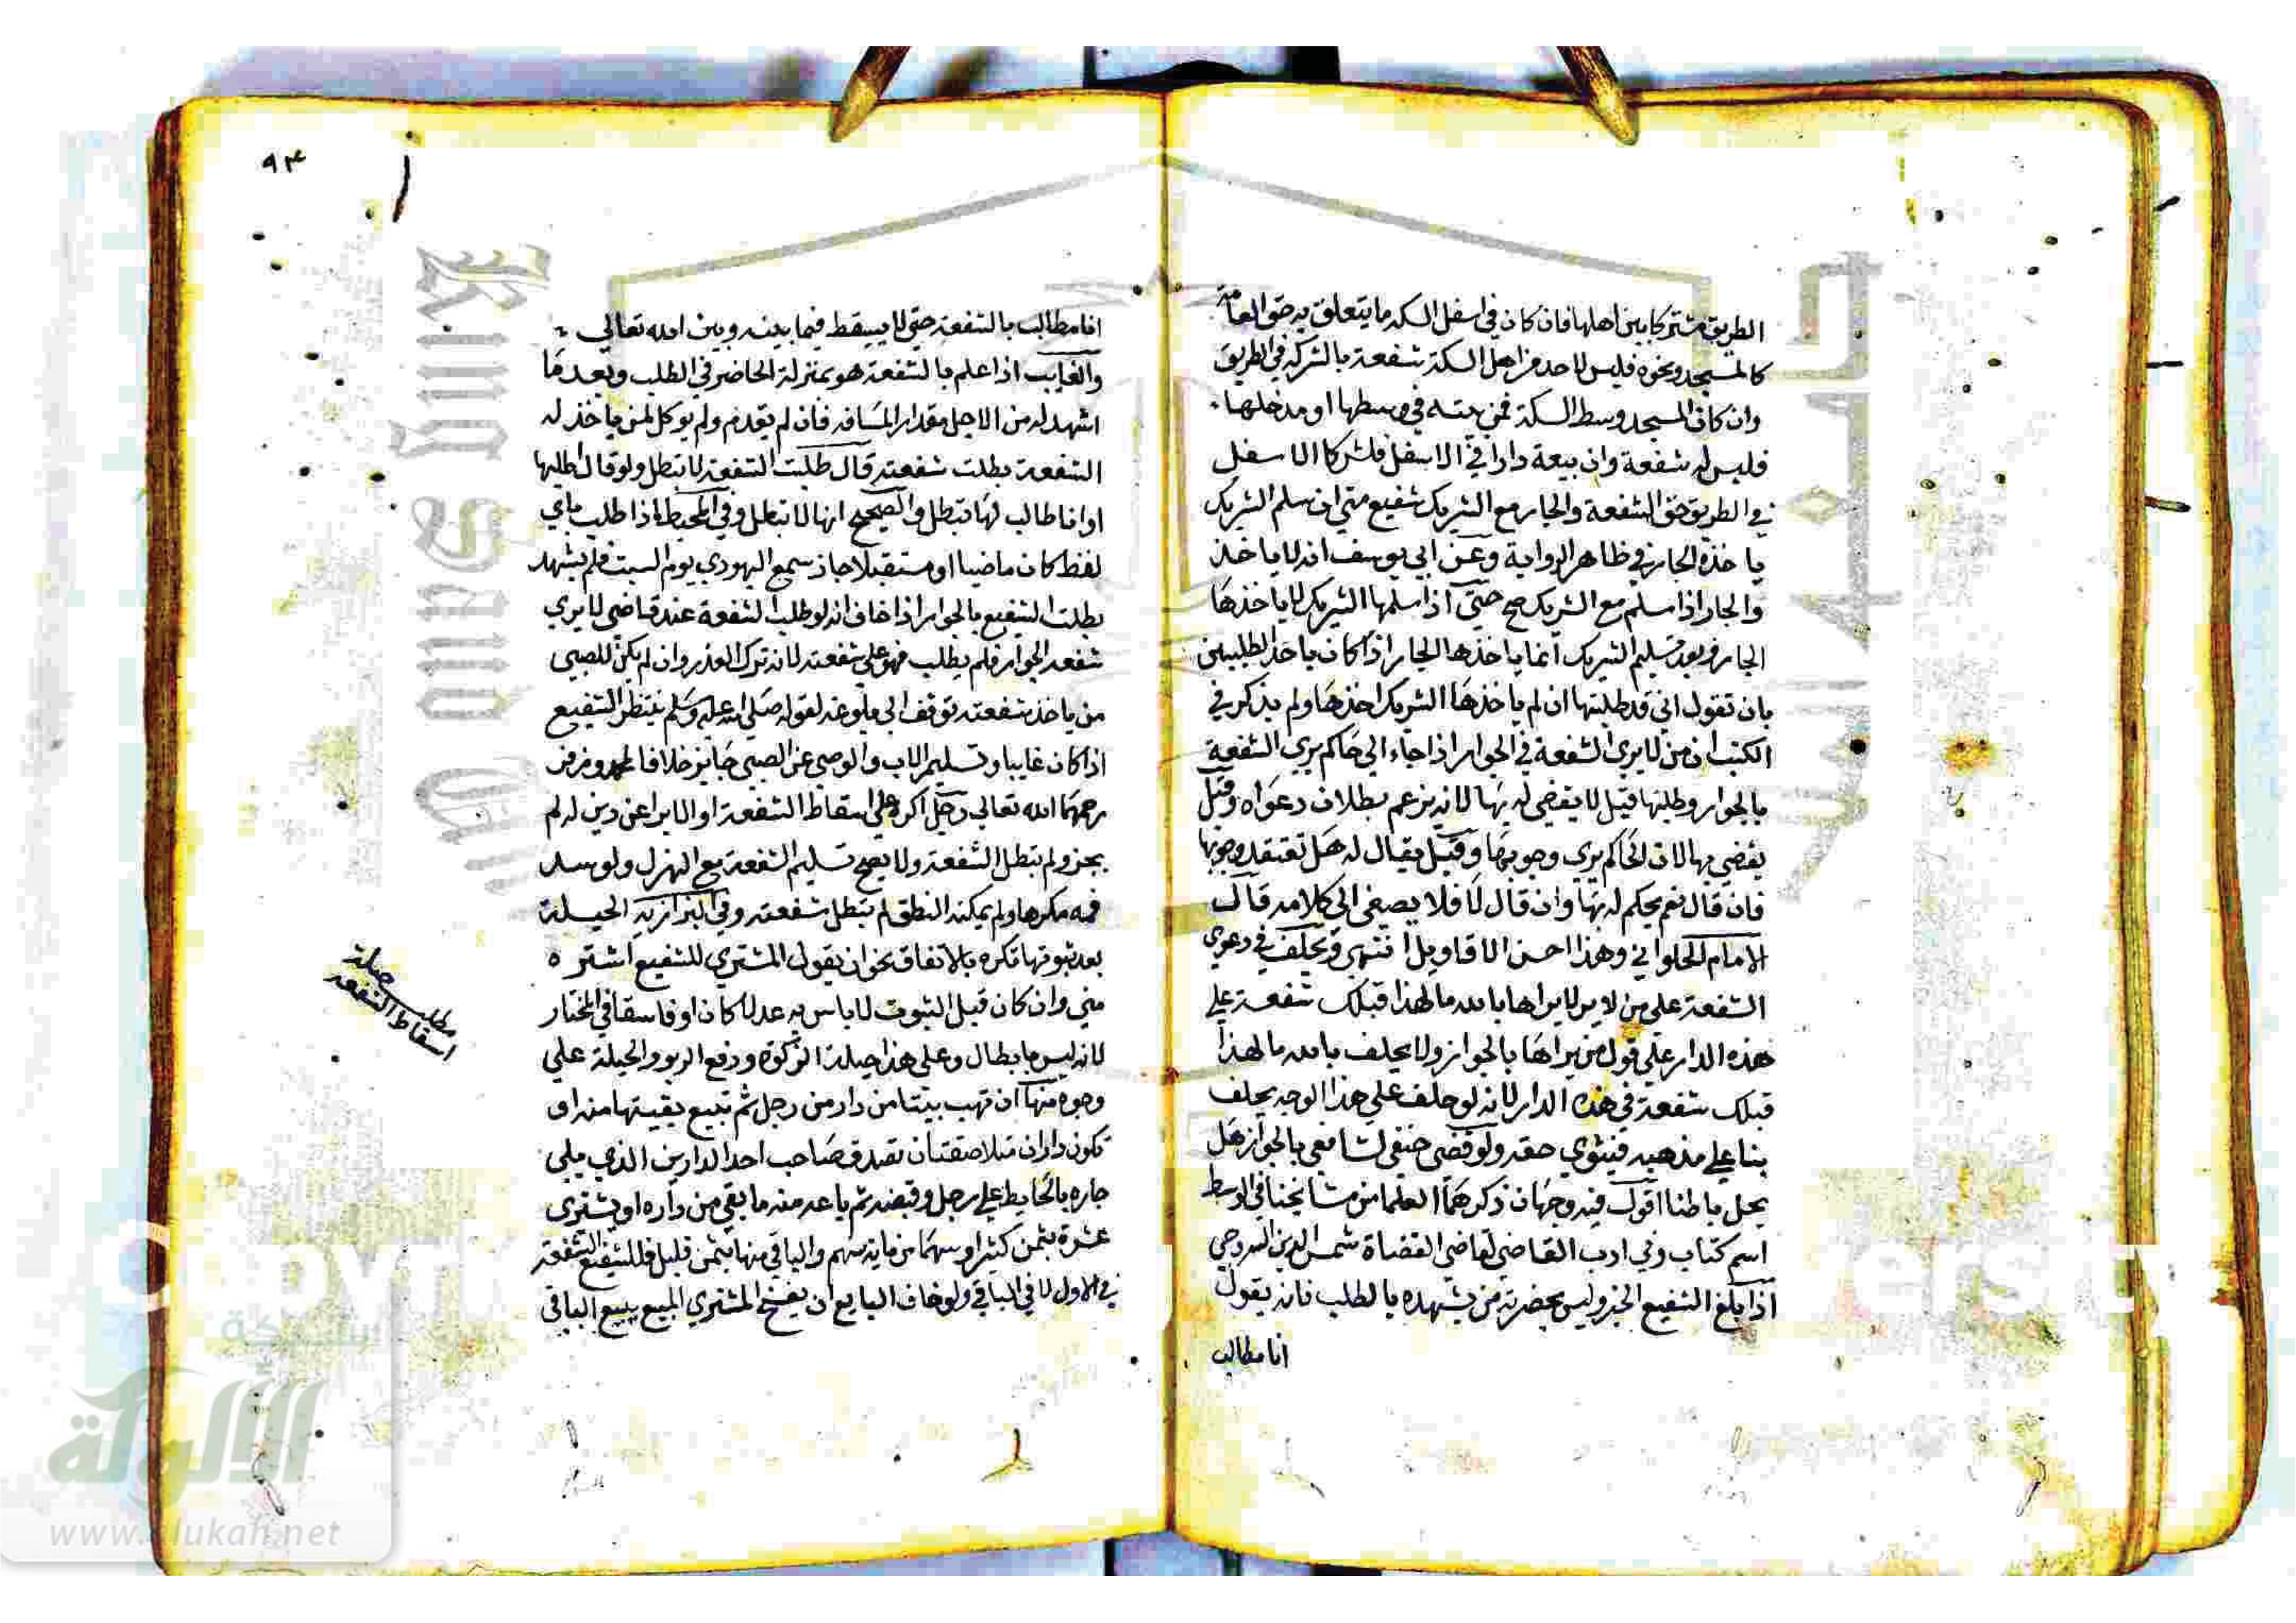 الطريق مشتركا بين اهلها فان كان في اسفل السكه ما يتعلق به حق العامة
كالمسجد ونحوه فليس لاحد من اهل السكة شفعة بالشركه في الطريق
وان كان المسجد وسط السكة فمن بيته في وسطها او مدخلها
فليس له شفعة وان بيعة دارا في الاسفل فلشركا الاسفل
في الطريق حق الشفعة والجار مع الشريك شفيع متي ان سلم الشريك
ياخذه الجار في ظاهر الرواية وعن ابي يوسف انه لا ياخذ
والجار اذا سلم مع الشريك صح حتي اذا سلمها الشريك لا ياخذها
الجار وبعد تسليم الشريك انما ياخذها الجار اذا كان ياخذ الطلبين
بان تقول اني قد طلبتها ان لم ياخذها الشريك اخذها ولم يذكر في
الكتب ان من لا يري الشفعة في الجوار اذا جاء الي حاكم يري الشفعة
بالجوار وطلبها قيل لا يقضي له بها لانه يزعم بطلان دعواه وقيل
يقضي بها لان الحاكم يري وجوبها وقيل يقال له هل تعتقد وجوبها
فان قال نعم يحكم له بها وان قال لا فلا يصغي الي كلامه قال
الامام الحلواني وهذا احسن الاقاويل انتهي ويحلف في دعوي
الشفعة علي من لا يراها بالله ما لهذا قبلك شفعة علي
هذه الدار علي قول من يراها بالجوار ولا يحلف بالله ما لهذا
قبلك شفعة في هذه الدار لانه لو حلف علي هذا الوجه يحلف
بنا علي مذهبه فيتوي حقه ولو قضي حنفي لشافعي بالجوار هل
يحل باطنا اقول فيه وجهان ذكرهما العلما من مشايخنا في الوسط
اسم كتاب وفي ادب القاضي لقاضي القضاة شمس الدين السروجي
اذا بلغ الشفيع الخبر وليس بحضرته من يشهده بالطلب فانه يقول
انا مطالب
٩٤
انا مطالب بالشفعة حتي لا يسقط فيما بينه وبين الله تعالي
والغايب اذا علم بالشفعة هو بمنزلة الحاضر في الطلب وبعد ما
اشهد له من الاجل مقدار المسافه فان لم يقدم ولم يوكل لمن ياخذ له
الشفعة بطلت شفعته قال طلبت الشفعة لا تبطل ولو قال اطلبها
او انا طالب لها تبطل والصحيح انها لا تبطل وفي المحيط اذا طلب باي
لفظ كان ماضيا او مستقبلا جاز سمع اليهودي يوم السبت فلم يشهد
بطلت الشفيع بالجوار اذا خاف انه لو طلب الشفعة عند قاضي لا يري
شفعه الجوار فلم يطلب فهو علي شفعته لانه ترك العذر وان لم يكن للصبي
من ياخذ شفعته توقف الي بلوغه لقوله صلي الله عليه وسلم ينتظر الشفيع
اذا كان غايبا وتسليم الاب والوصي عن الصبي جايز خلافا لمحمد وزفر
رحمهما الله تعالي رجل اكره علي اسقاط الشفعة او الابرا عن دين له لم
يجز ولم تبطل الشفعة ولا يصح تسليم الشفعة مع الهزل ولو سد
فمه مكرها ولم يمكنه النطق لم تبطل شفعته وفي البزازيه الحيلة
بعد ثبوتها تكره بالاتفاق نحو ان يقول المشتري للشفيع اشتره
مني وان كان قبل الثبوت لا باس به عدلا كان او فاسقا في المختار
لانه ليس بابطال وعلي هذا حيلة الزكوة ودفع الربو والحيلة علي
وجوه منها ان تهب بيتا من دار من رجل ثم تبيع بقيتها منه او
تكون داران متلاصقتان تصدق صاحب احد الدارين الذي يلي
جاره بالحايط علي رجل وقبضه ثم باعه منه ما بقي من داره او يشتري
عشرة بثمن كثير او سهما من ماية سهم والباقي منها بثمن قليل فللشفيع الشفعة
في الاول لا في الباقي ولو خاف البايع ان يفسخ المشتري المبيع ببيع الباقي
مطلب حيلة
اسقاط الشفعه
شبكة
الألوكة
www.alukah.net